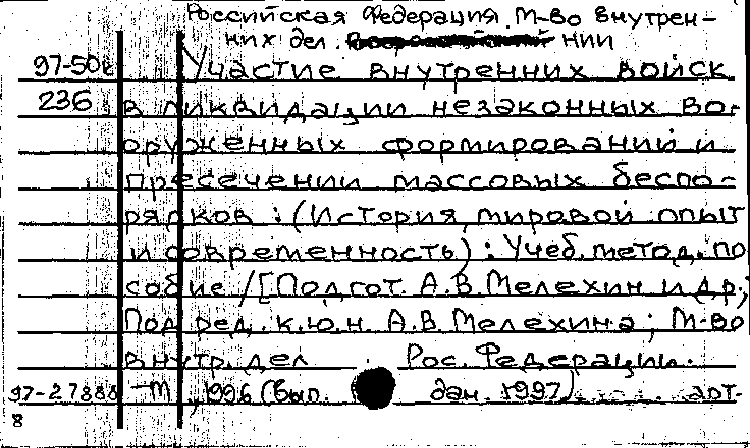 Российская Федерация. М-во внутрен-
них дел. НИИ
97-50
Участие внутренних войск
236
в ликвидации незаконных во-
оруженных формирований и
пресечении массовых беспо-
рядков : (История, мировой опыт
и современность) : Учеб.-метод. по
собие / [Подгот. А.В. Мелехин и др.;
Под ред. к.ю.н. А.В. Мелехина; М-во
внутр. дел Рос. Федерации.
97-27888
М , 1996 (Вып. дан. 1997)
8